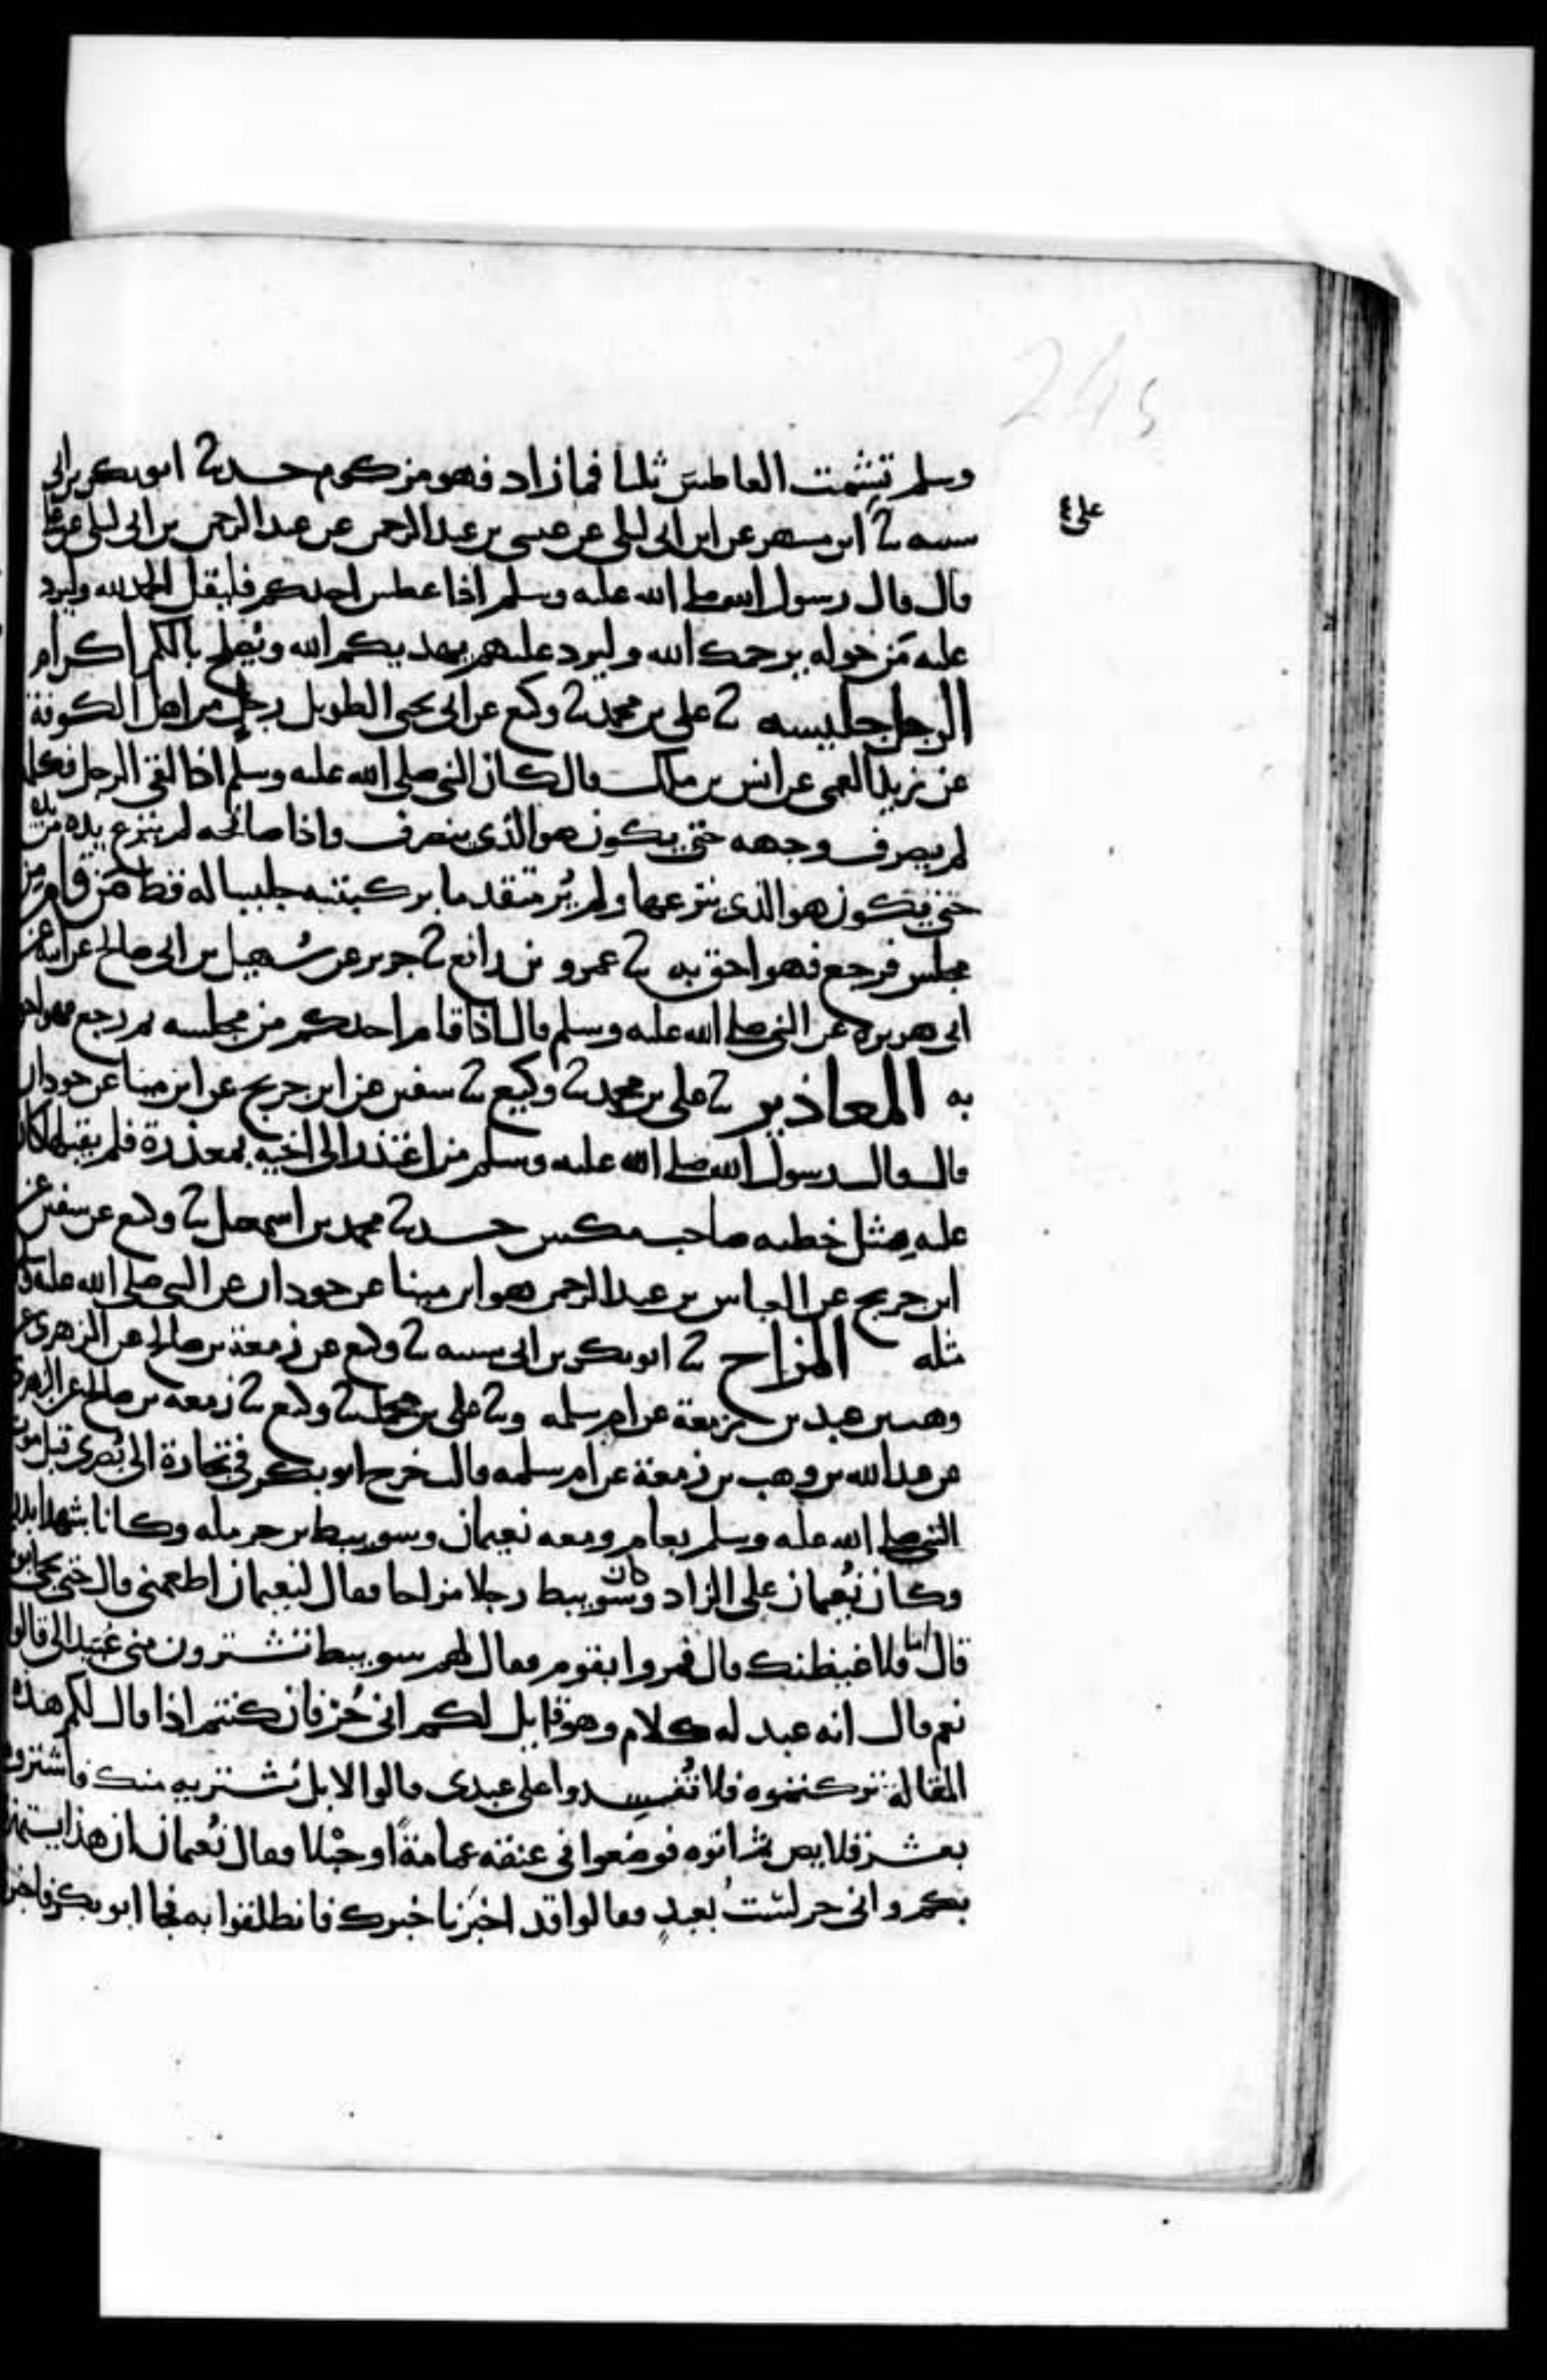 245
وسلم تشمت العاطس ثلثا فما زاد فهو مزكوم حدثنا ابو بكر بن ابي
علي
شيبه ثنا ابن مسهر عن ابن ابي ليلى عن عيسى بن عبد الرحمن عن عبد الرحمن بن ابي ليلى عن علي
قال قال رسول الله صلى الله عليه وسلم اذا عطس احدكم فليقل الحمد لله وليرد
عليه من حوله يرحمك الله وليرد عليهم يهديكم الله ويصلح بالكم اكرام
الرجل جليسه ثنا علي بن محمد ثنا وكيع عن ابي يحيى الطويل رجل من اهل الكوفة
عن زيد العمي عن انس بن ملك قال كان النبي صلى الله عليه وسلم اذا لقي الرجل فكلمه
لم يصرف وجهه حتى يكون هو الذي ينصرف واذا صافحه لم ينزع يده من يده
حتى يكون هو الذي ينزعها ولم ير متقدما بركبتيه جليسا له قط من قام من
مجلس فرجع فهو احق به ثنا عمرو بن رافع ثنا جرير عن سهيل بن ابي صالح عن ابيه عن
ابي هريره عن النبي صلى الله عليه وسلم قال اذا قام احدكم من مجلسه ثم رجع فهو احق
به المعاذير ثنا علي بن محمد ثنا وكيع ثنا سفين عن ابن جريج عن ابن مينا عن جودان
قال قال رسول الله صلى الله عليه وسلم من اعتذر الى اخيه بمعذرة فلم يقبلها كان
عليه مثل خطيه صاحب مكس حدثنا محمد بن اسمعيل ثنا وكيع عن سفين عن
ابن جريج عن العباس بن عبد الرحمن هو ابن مينا عن جودان عن النبي صلى الله عليه وسلم
مثله المزاح ثنا ابو بكر بن ابي شيبه ثنا وكيع عن زمعة بن صالح عن الزهري عن
وهب بن عبد بن زمعة عن ام سلمه وثنا علي بن محمد ثنا وكيع ثنا زمعه بن صالح عن الزهري
عن عبد الله بن وهب بن زمعة عن ام سلمه قالت خرج ابو بكر في تجارة الى بصرى قبل موت
النبي صلى الله عليه وسلم بعام ومعه نعيمان وسويبط بن حرمله وكانا شهدا بدرا
وكان نعيمان على الزاد وكان سويبط رجلا مزاحا فقال لنعيمان اطعمني قال حتى يجي ابو
قال اما فلاغيظنك قال فمروا بقوم فقال لهم سويبط تشترون مني عبدا لي قالوا
نعم قال انه عبد له كلام وهو قايل لكم اني حر فان كنتم اذا قال لكم هذه
المقالة تركتموه فلا تفسدوا علي عبدي قالوا لا بل نشتريه منك فاشتروه
بعشر قلايص ثم اتوه فوضعوا في عنقه عمامة او حبلا فقال نعيمان ان هذا يستهزئ
بكم واني حر لست بعبد فقالوا قد اخبرنا خبرك فانطلقوا به فجا ابو بكر فاخبر